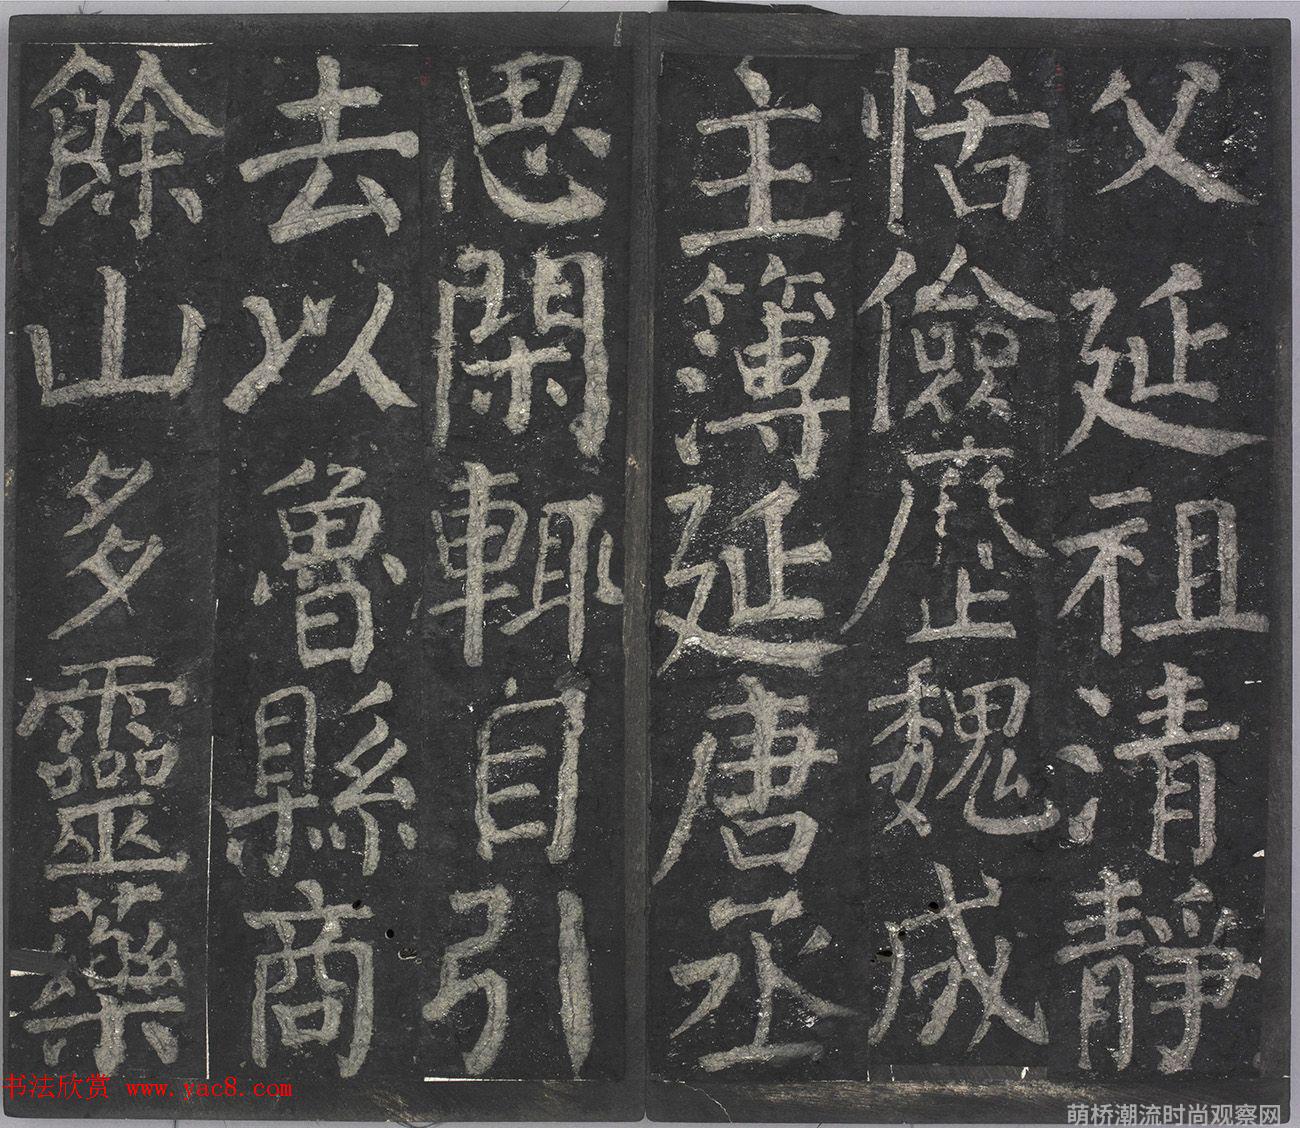 父延祖清靜
恬儉歷魏成
主簿延唐丞
思閑輒自引
去以魯縣商
餘山多靈藥
书法欣赏 www.yac8.com
萌桥潮流时尚观察网